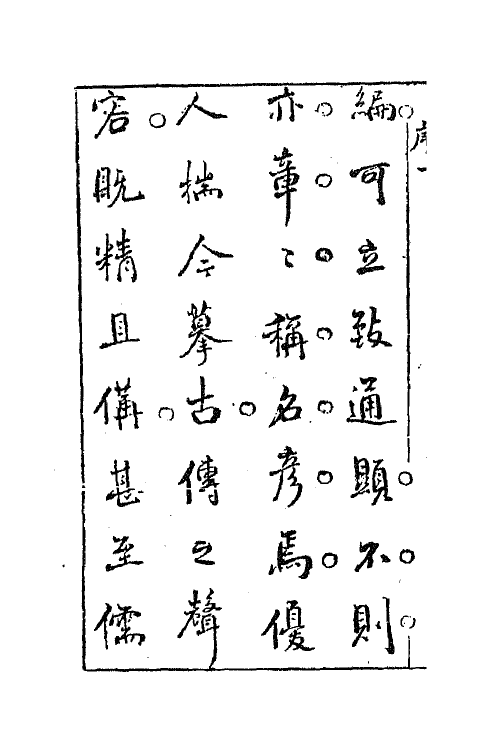 序一
編可立致通顯不則
亦章〻稱名彥焉優
人揣今摹古傳之聲
容既精且備甚至儒